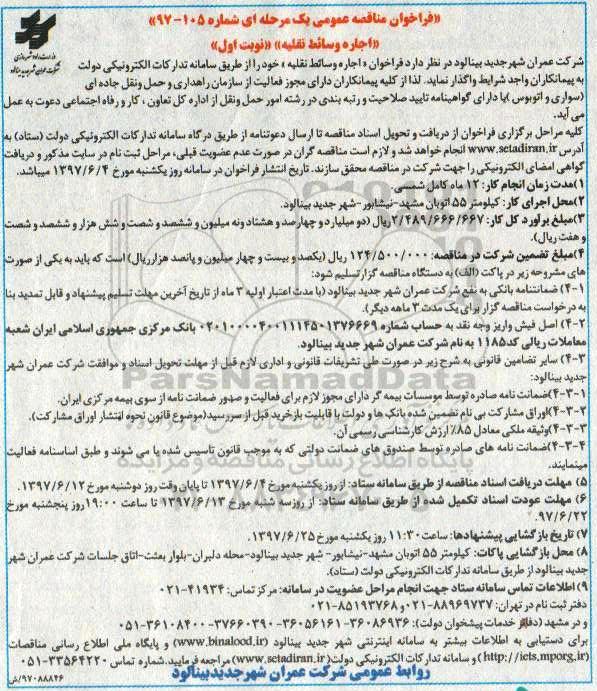 «فراخوان مناقصه عمومی یک مرحله ای شماره ۱۰۵-۹۷»
«اجاره وسائط نقلیه» «نوبت اول»
وزارت راه و شهرسازی
شرکت عمران شهر جدید بینالود
شرکت عمران شهر جدید بینالود در نظر دارد فراخوان «اجاره وسائط نقلیه» خود را از طریق سامانه تدارکات الکترونیکی دولت
به پیمانکاران واجد شرایط واگذار نماید. لذا از کلیه پیمانکاران دارای مجوز فعالیت از سازمان راهداری و حمل ونقل جاده ای
(سواری و اتوبوس) یا دارای گواهینامه تایید صلاحیت و رتبه بندی در رشته امور حمل ونقل از اداره کل تعاون ، کار و رفاه اجتماعی دعوت به عمل
می آید.
کلیه مراحل برگزاری فراخوان از دریافت و تحویل اسناد مناقصه تا ارسال دعوتنامه از طریق درگاه سامانه تدارکات الکترونیکی دولت (ستاد) به
آدرس www.setadiran.ir انجام خواهد شد و لازم است مناقصه گران در صورت عدم عضویت قبلی، مراحل ثبت نام در سایت مذکور و دریافت
گواهی امضای الکترونیکی را جهت شرکت در مناقصه محقق سازند. تاریخ انتشار فراخوان در سامانه روز یکشنبه مورخ ۱۳۹۷/۶/۴ میباشد.
۱)مدت زمان انجام کار: ۱۲ ماه کامل شمسی.
۲)محل اجرای کار: کیلومتر ۵۵ اتوبان مشهد-نیشابور -شهر جدید بینالود.
۳)مبلغ برآورد کل کار: ۲/۴۸۹/۶۶۶/۶۶۷ ریال (دو میلیارد و چهارصد و هشتاد ونه میلیون و ششصد و شصت و شش هزار و ششصد و شصت
و هفت ریال).
۴)مبلغ تضمین شرکت در مناقصه: ۱۲۴/۵۰۰/۰۰۰ ریال (یکصد و بیست و چهار میلیون و پانصد هزارریال) است که باید به یکی از صورت
های مشروحه زیر در پاکت (الف) به دستگاه مناقصه گزار تسلیم شود:
۴-۱) ضمانتنامه بانکی به نفع شرکت عمران شهر جدید بینالود (با مدت اعتبار اولیه ۳ ماه از تاریخ آخرین مهلت تسلیم پیشنهاد و قابل تمدید بنا
به درخواست مناقصه گزار برای یک مدت ۳ ماهه دیگر).
۴-۲) اصل فیش واریز وجه نقد به حساب شماره ۰۲۰۱۰۰۰۰۴۰۰۱۱۱۴۵۰۱۳۷۶۶۶۹ بانک مرکزی جمهوری اسلامی ایران شعبه
معاملات ریالی کد۱۱۸۵ به نام شرکت عمران شهر جدید بینالود.
۴-۳) سایر تضامین قانونی به شرح زیر در صورت طی تشریفات قانونی و اداری لازم قبل از مهلت تحویل اسناد و موافقت شرکت عمران شهر
جدید بینالود:
۴-۳-۱)ضمانت نامه صادره توسط موسسات بیمه گر دارای مجوز لازم برای فعالیت و صدور ضمانت نامه از سوی بیمه مرکزی ایران.
۴-۳-۲)اوراق مشارکت بی نام تضمین شده بانک ها و دولت با قابلیت بازخرید قبل از سررسید(موضوع قانون نحوه انتشار اوراق مشارکت).
۴-۳-۳)وثیقه ملکی معادل ۸۵٪ ارزش کارشناسی رسمی آن.
۴-۳-۴)ضمانت نامه های صادره توسط صندوق های ضمانت دولتی که به موجب قانون تاسیس شده یا می شوند و طبق اساسنامه فعالیت
مینمایند.
۵) مهلت دریافت اسناد مناقصه از طریق سامانه ستاد: از روز یکشنبه مورخ ۱۳۹۷/۶/۴ تا پایان وقت روز دوشنبه مورخ ۱۳۹۷/۶/۱۲.
۶) مهلت عودت اسناد تکمیل شده از طریق سامانه ستاد: از روز سه شنبه مورخ ۱۳۹۷/۶/۱۳ تا ساعت ۱۹:۰۰ روز پنجشنبه مورخ
۹۷/۶/۲۲.
۷) تاریخ بازگشایی پیشنهادها: ساعت ۱۱:۳۰ روز یکشنبه مورخ ۱۳۹۷/۶/۲۵
۸) محل بازگشایی پاکات: کیلومتر ۵۵ اتوبان مشهد-نیشابور- شهر جدید بینالود-محله دلبران-بلوار بعثت-اتاق جلسات شرکت عمران شهر
جدید بینالود از طریق سامانه تدارکات الکترونیکی دولت (ستاد).
۹) اطلاعات تماس سامانه ستاد جهت انجام مراحل عضویت در سامانه: مرکز تماس: ۴۱۹۳۴-۰۲۱
دفتر ثبت نام در تهران: ۸۸۹۶۹۷۳۷-۰۲۱ و ۸۵۱۹۳۷۶۸-۰۲۱
و در مشهد (دفاتر خدمات پیشخوان دولت): ۳۶۰۸۶۹۳۶-۳۶۰۵۶۱۶۱-۳۷۶۶۰۳۹۰-۳۶۱۰۸۴۰۰-۰۵۱
برای دستیابی به اطلاعات بیشتر به سامانه اینترنتی شهر جدید بینالود (www.binalood.ir) و پایگاه ملی اطلاع رسانی مناقصات
(http://iets.mporg.ir) و سامانه تدارکات الکترونیکی دولت (www.setadiran.ir) مراجعه فرمایید. شماره تماس ۳۳۵۶۴۲۲۰-۰۵۱
روابط عمومی شرکت عمران شهرجدیدبینالود
۹۷۰۸۸۸۴۶/ش
ParsNamadData
پایگاه اطلاع رسانی مناقصه و مزایده